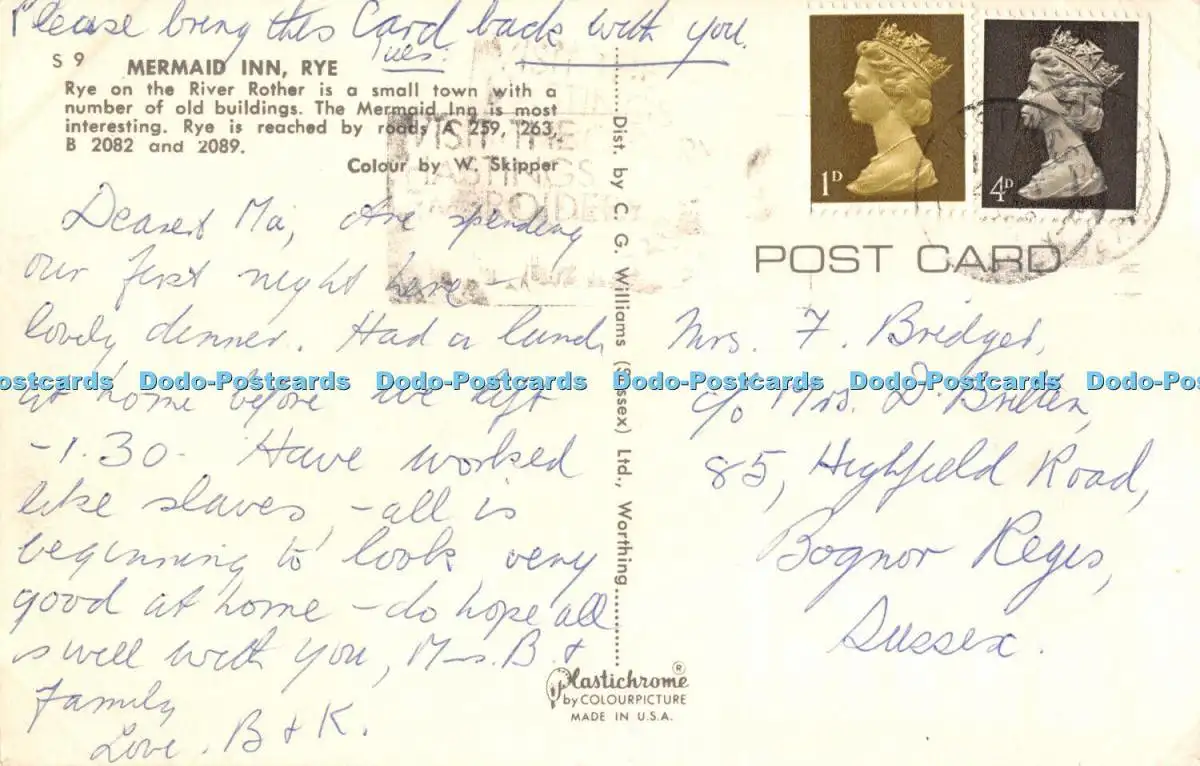 Please bring this Card back with you.
Tues.
S 9
MERMAID INN, RYE
Rye on the River Rother is a small town with a
number of old buildings. The Mermaid Inn is most
interesting. Rye is reached by roads A 259, 263,
B 2082 and 2089.
Colour by W. Skipper
Dearest Ma, Are spending
our first night here –
lovely dinner. Had a lunch
at home before we left
– 1.30. Have worked
like slaves, – all is
beginning to look very
good at home – do hope all
is well with you, Mrs. B. &
Family
Love. B & K.
Dist. by C. G. Williams (Sussex) Ltd., Worthing
Plastichrome ®
by COLOURPICTURE
MADE IN U.S.A.
VISIT THE
HASTINGS
EMBROIDERY
1D
4D
POST CARD
Mrs. F. Bridges,
c/o Mrs. D. Britten,
85, Highfield Road,
Bognor Regis,
Sussex.
Dodo-Postcards Dodo-Postcards Dodo-Postcards Dodo-Postcards Dodo-Postcards Dodo-Postcards